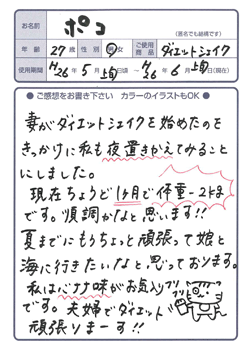 お名前 ポコ
(匿名でも結構です)
年齢 27歳 性別 男 女 ご使用商品 ダイエットシェイク
使用期間 H26年5月上旬日頃 ~ H26年6月上旬日(現在)
●ご感想をお書き下さい カラーのイラストもOK●
妻がダイエットシェイクを始めたのを
きっかけに私も夜置きかえてみること
にしました。
現在ちょうど1ヶ月で体重-2kg
です。順調かなと思います!!
夏までにもうちょっと頑張って娘と
海に行きたいなと思っております。
私はバナナ味がお気入り
です。夫婦でダイエット
頑張りまーす!!